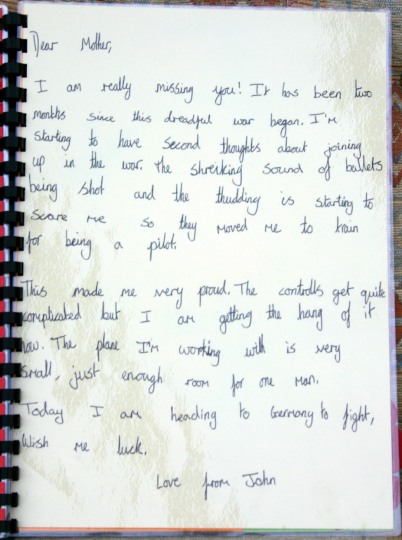 Dear Mother,
I am really missing you! It has been two
months since this dreadful war began. I'm
starting to have second thoughts about joining
up in the war. The shreiking sound of bullets
being shot and the thudding is starting to
scare me so they moved me to train
for being a pilot.
This made me very proud. The controlls get quite
complicated but I am getting the hang of it
now. The plane I'm working with is very
small, just enough room for one man.
Today I am heading to Germany to fight,
Wish me luck.
Love from John